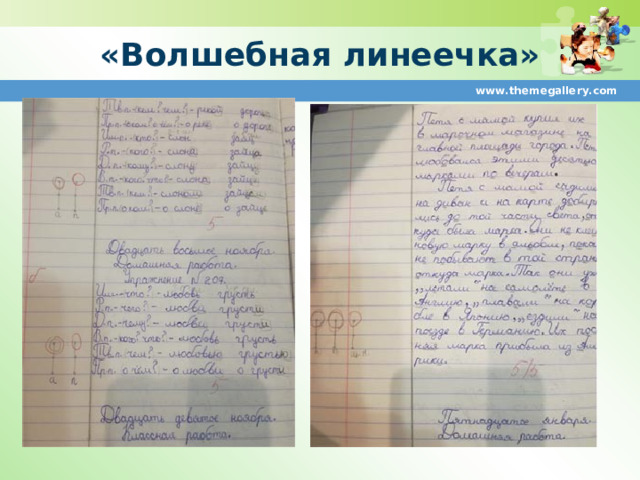 «Волшебная линеечка»
www.themegallery.com
Тв.п.-кем? чем? - рекой дорогой
Пр.п.-о ком? о чём? - о реке о дороге
Им.п.-кто? - слон заяц
Р.п. - кого? - слона зайца
Д.п. - кому? - слону зайцу
В.п. - кого? - слона зайца
Тв.п. кем? - слоном зайцем
Пр.п. о ком? - о слоне о зайце
5
Двадцать восьмое ноября.
Домашняя работа.
Упражнение № 209.
Им. - что? - любовь грусть
Р.п. - чего? - любви грусти
Д.п. - чему? - любви грусти
В.п. - что? - любовь грусть
Тв.п. чем? - любовью грустью
Пр.п. о чём? - о любви о грусти
а п
5
Двадцать девятое ноября.
Классная работа.
Петя с мамой купил их
в марочном магазине на
главной площади города. Петя
любовался этими десятью
марками по вечерам.
Петя с мамой садились
на диван и на карте добира-
лись до той части света, от-
куда была марка. Они не кле
новую марку в альбом, пока
не побывают в той стране
откуда марка. Так они уже
„летали" на самолёте в
Англию, „плавали" на кораб-
бле в Японию, „ездили" на
поезде в Германию. Их
няя марка прибыла из Аме-
рики.
5/5
Пятнадцатое января.
Домашняя работа.